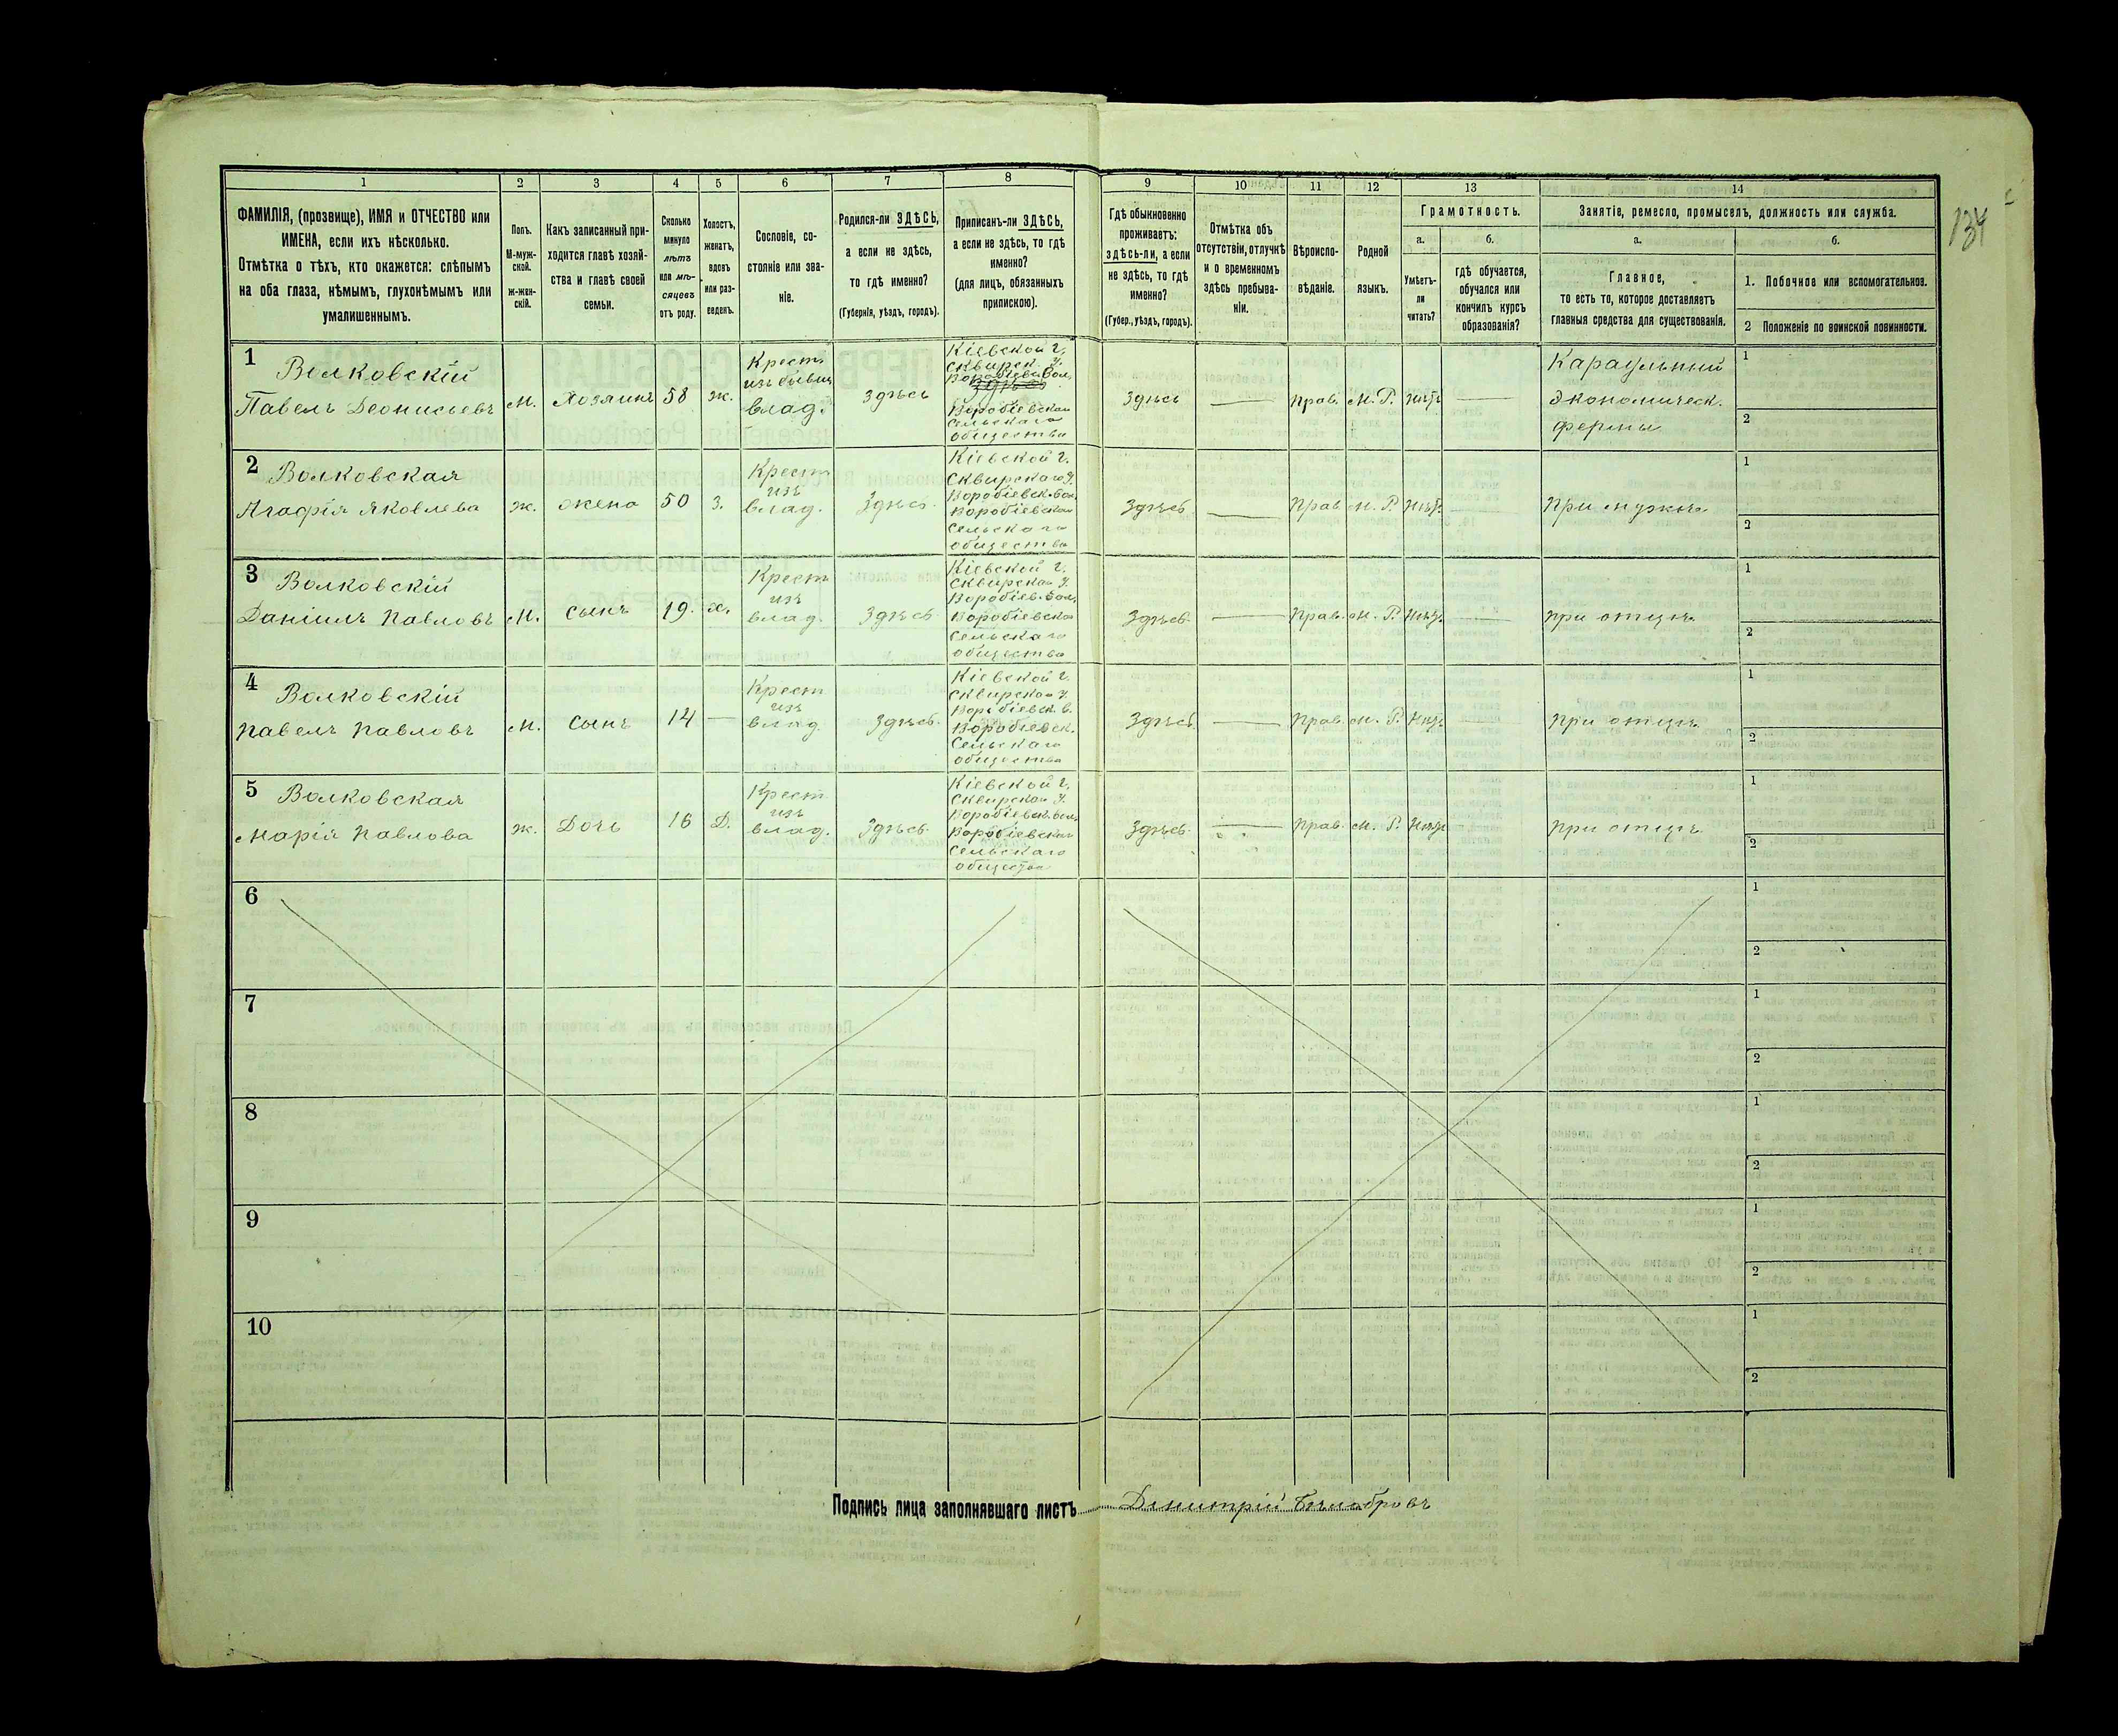 134
1 2 3 4 5 6 7 8 9 10 11 12 13 14
ФАМИЛІЯ, (прозвище), ИМЯ и ОТЧЕСТВО или
ИМЕНА, если ихъ нѣсколько.
Отмѣтка о тѣхъ, кто окажется: слѣпымъ
на оба глаза, нѣмымъ, глухонѣмымъ или
умалишеннымъ.
Полъ.
М-муж-
ской.
Ж-жен-
скій.
Какъ записанный при-
ходится главѣ хозяй-
ства и главѣ своей
семьи.
Сколько
минуло
лѣтъ
или мѣ-
сяцевъ
отъ роду.
Холостъ,
женатъ,
вдовъ
или раз-
веденъ.
Сословіе, со-
стояніе или зва-
ніе.
Родился-ли ЗДѢСЬ,
а если не здѣсь,
то гдѣ именно?
(Губернія, уѣздъ, городъ).
Приписанъ-ли ЗДѢСЬ,
а если не здѣсь, то гдѣ
именно?
(для лицъ, обязанныхъ
припискою).
Гдѣ обыкновенно
проживаетъ:
здѣсь-ли, а если
не здѣсь, то гдѣ
именно?
(Губер., уѣздъ, городъ).
Отмѣтка объ
отсутствіи, отлучкѣ
и о временномъ
здѣсь пребыва-
ніи.
Вѣроиспо-
вѣданіе.
Родной
языкъ.
Грамотность.
а.
Умѣетъ-
ли
читать?
б.
гдѣ обучается,
обучался или
кончилъ курсъ
образованія?
Занятіе, ремесло, промыселъ, должность или служба.
а.
Главное,
то есть то, которое доставляетъ
главныя средства для существованія.
б.
1. Побочное или вспомогательное.
2 Положеніе по воинской повинности.
1
Волковскій
Павелъ Деонисьевъ
м.
Хозяинъ
58
ж.
Крест.
изъ бывш
влад.
здѣсь
Кіевской г.
Сквирск. у.
Воробіевс. Вол.
Воробіевскаго
Сельскаго
общества
здѣсь
—
Прав.
М. Р.
нѣтъ
—
Караульный
экономическ.
фермы
1
2
2
Волковская
Агафія Яковлева
ж.
жена
50
з.
Крест
изъ
влад.
Здѣсь
Кіевской г.
Сквирскаго у.
Воробіевск. вол.
Воробіевскаго
Сельскаго
общества
Здѣсь
—
Прав.
М. Р.
Нѣтъ
—
При мужѣ
1
2
3
Волковскій
Даніилъ Павловъ
М.
сынъ
19.
х.
Крест
изъ
влад.
Здѣсь
Кіевской г.
Сквирскаго у.
Воробіев. вол.
Воробіевскаго
Сельскаго
общества
Здѣсь
—
Прав.
М. Р.
Нѣтъ
—
при отцѣ
1
2
4
Волковскій
Павелъ Павловъ
М.
сынъ
14
—
Крест
изъ
влад.
Здѣсь
Кіевской г.
Сквирскаго у.
Воробіевск. в.
Воробіевск.
Сельскаго
общества
Здѣсь
—
Прав.
М. Р.
Нѣтъ
—
при отцѣ
1
2
5
Волковская
Марія Павлова
ж.
Дочь
16
Д.
Крест
изъ
влад.
Здѣсь
Кіевской г.
Сквирскаго у.
Воробіевск. вол.
Воробіевскаго
Сельскаго
общества
Здѣсь
—
Прав.
М. Р.
Нѣтъ
при отцѣ
1
2
6
1
2
7
1
2
8
1
2
9
1
2
10
1
2
Подпись лица заполнявшаго листъ Димитрій